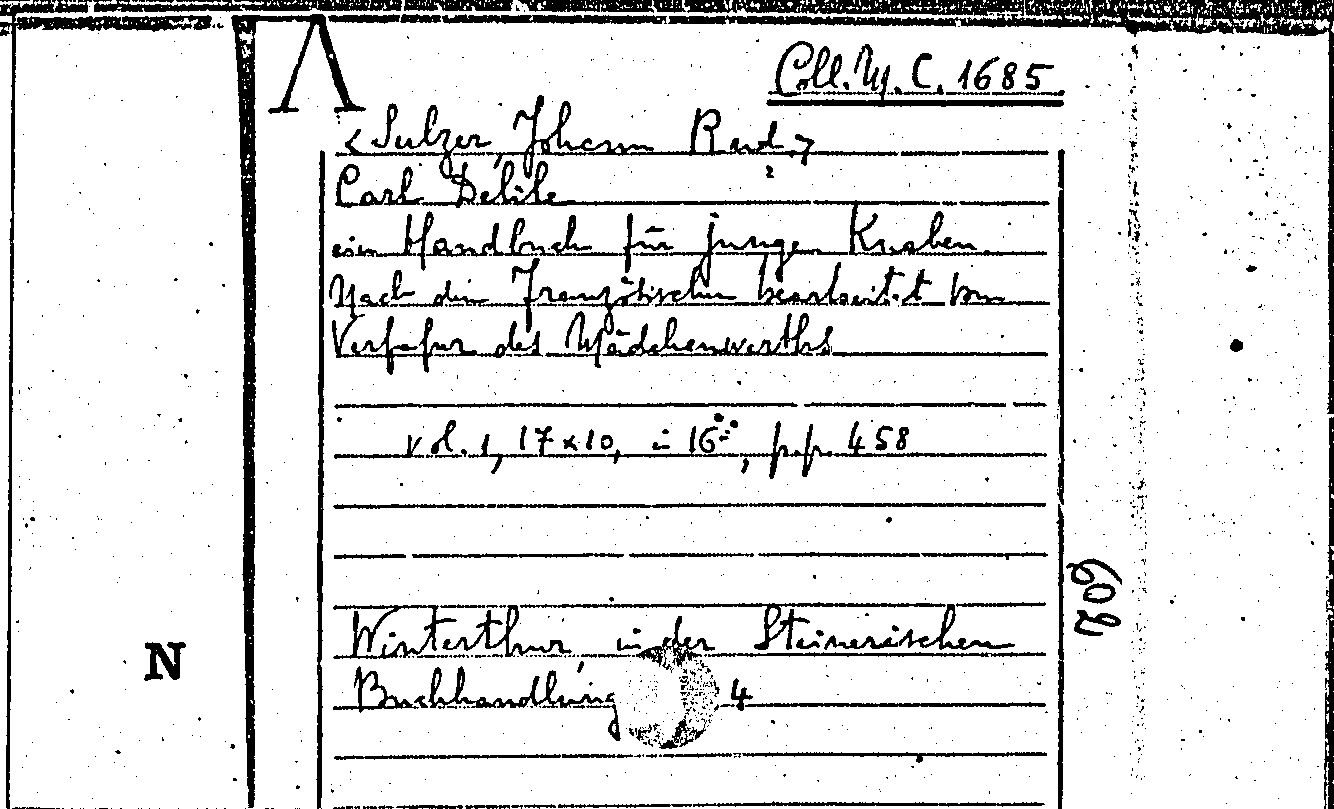 Coll. M. C. 1685
<Sulzer, Johann Rud.>
Carl Delile
ein Handbuch für junge Knaben
Nach dem Französischen bearbeitet vom
Verfasser des Mädchenwerths
vol. 1, 17 x 10, in 16°, pp. 458
Winterthur, in der Steinerischen
Buchhandlung 4
602
N